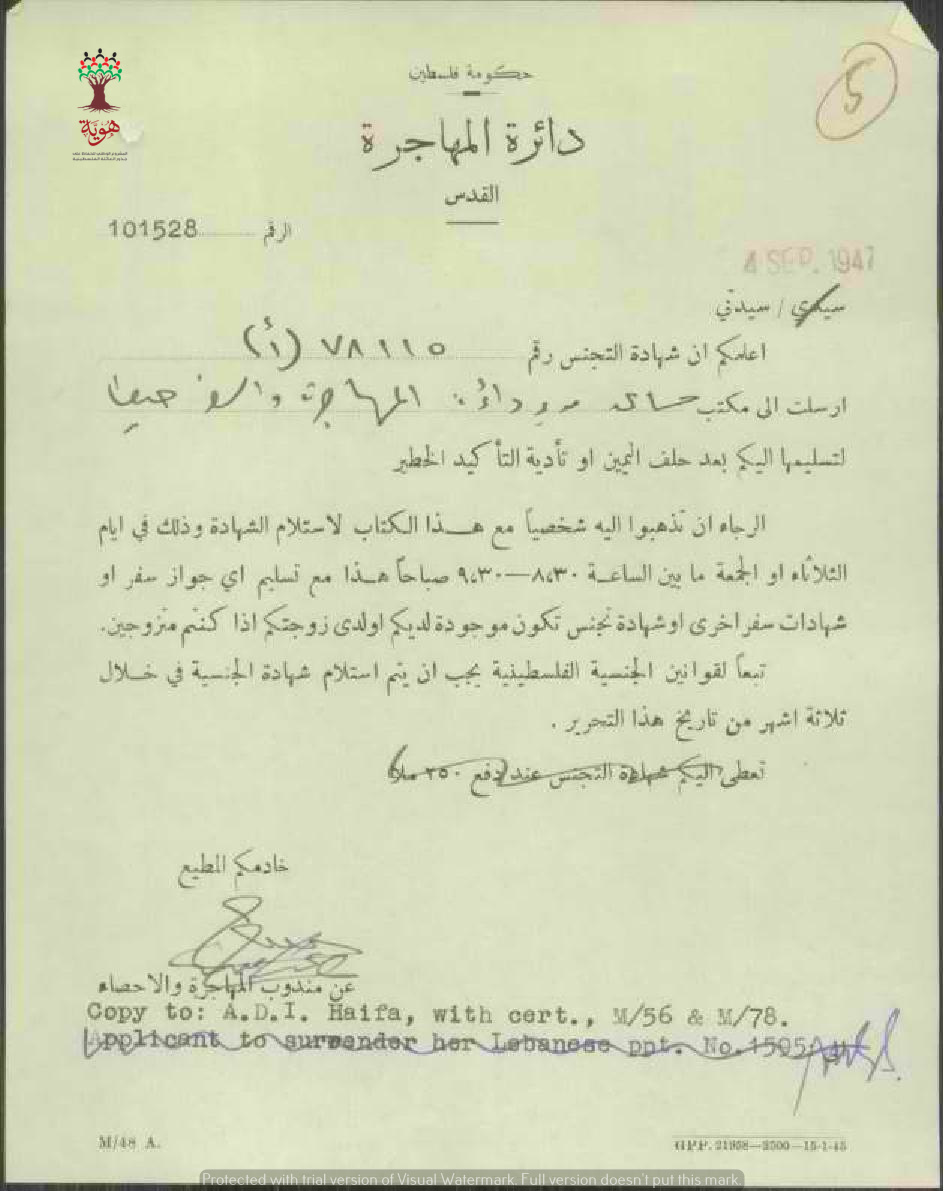 هوية
5
حكومة فلسطين
دائرة المهاجرة
القدس
الرقم 101528
4 SEP. 1947
سيدي / سيدتي
اعلمكم ان شهادة التجنس رقم ٧٨١١٥ (أ)
ارسلت الى مكتب دائرة المهاجرة حيفا
لتسليمها اليكم بعد حلف اليمين او تأدية التأكيد الخطير
الرجاء ان تذهبوا اليه شخصياً مع هـذا الكتاب لاستلام الشهادة وذلك في ايام
الثلاثاء او الجمعة ما بين الساعـة ٨،٣٠—٩،٣٠ صباحاً هـذا مع تسليم اي جواز سفر او
شهادات سفر اخرى او شهادة تجنس تكون موجودة لديكم او لدى زوجتكم اذا كنتم متزوجين.
تبعاً لقوانين الجنسية الفلسطينية يجب ان يتم استلام شهادة الجنسية في خـلال
ثلاثة اشهر من تاريخ هذا التحرير .
تعطى اليكم شهادة التجنس عند دفع ٢٥٠ ملا
خادمكم المطيع
عن مندوب المهاجرة والاحصاء
Copy to: A.D.I. Haifa, with cert., M/56 & M/78.
Applicant to surrender her Lebanese ppt. No.1505
M/48 A.
GPP. 21958—3500—15-1-45
Protected with trial version of Visual Watermark. Full version doesn't put this mark.